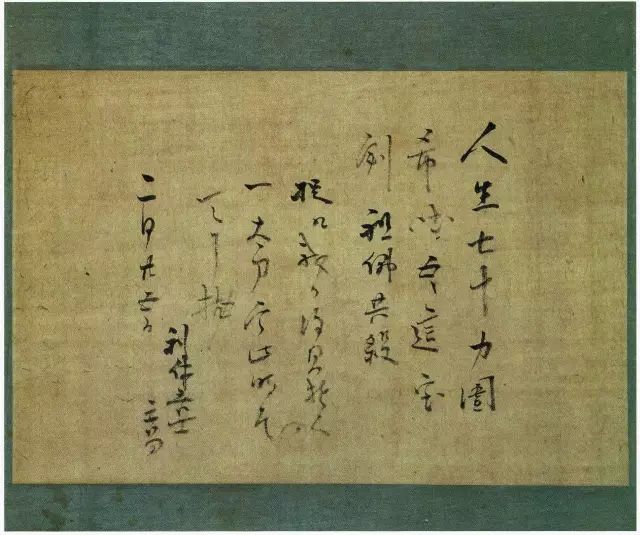 人生七十力圍
希咄吾這宝
剣祖佛共殺
提ル我得具足の
一太刀今此時そ
天に抛
二月廿五日
利休居士